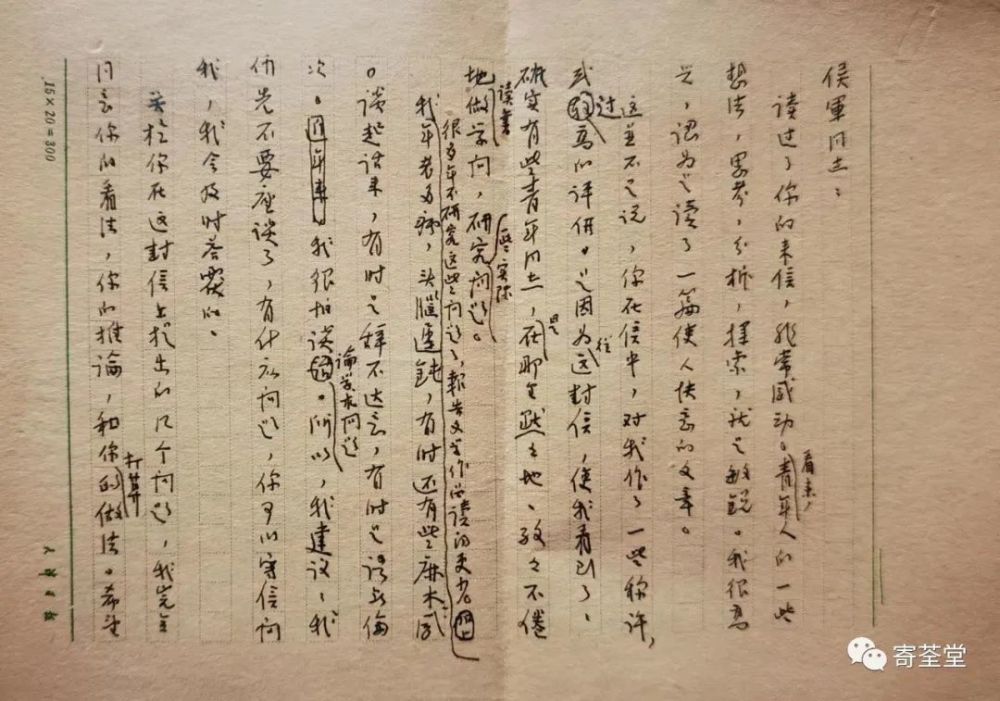 侯軍同志:
读过了你的来信,非常感动。看来,青年人的一些
想法,思考,分析,探索,就是敏锐。我很高
兴,认为是读了一篇使人快意的文章。
这并不是说,你在信中,对我作了一些称许,
或过高的评价。是因为从这封信,使我看到了,
确实有些青年同志,是在那里默默地、孜孜不倦
地读书做学问,研究些实际问题。
很多年不研究这些问题了,報告文学作品读的更少。
我年老多病,头腦遲鈍,有时还有些麻木感
。谈起话来,有时是辞不达意,有时是语无伦
次。我很怕谈论学术问题。所以,我建议,我
们先不要座谈了,有什么问题,你可以写信问
我,我会及时答覆的。
关于你在这封信上提出的几个问题,我完全
同意你的看法,你的推论,和你打算的做法。希望
15×20=300
寄荃堂